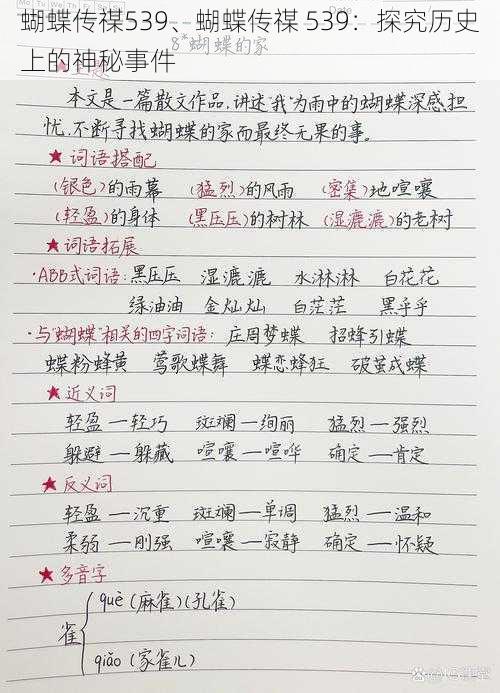 蝴蝶传禖539、蝴蝶传禖 539：探究历史上的神秘事件
8*蝴蝶的家
本文是一篇散文作品,讲述“我”为雨中的蝴蝶深感担
忧,不断寻找蝴蝶的家而最终无果的事。
★词语搭配
(银色)的雨幕 (猛烈)的风雨 (密集)地喧嚷
(轻盈)的身体 (黑压压)的树林 (湿漉漉)的老树
★词语拓展
·ABB式词语:黑压压 湿漉漉 水淋淋 白花花
绿油油 金灿灿 白茫茫 黑乎乎
·与“蝴蝶”相关的四字词语: 庄周梦蝶 招蜂引蝶
蝶粉蜂黄 莺歌蝶舞 蝶恋蜂狂 破茧成蝶
★近义词
轻盈—轻巧 斑斓—绚丽 猛烈—强烈
躲避—躲藏 喧嚷—喧哗 确定—肯定
★反义词
轻盈—沉重 斑斓—单调 猛烈—温和
柔弱—刚强 喧嚷—寂静 确定—怀疑
★多音字
雀
què (麻雀)(孔雀)
qiǎo (家雀儿)